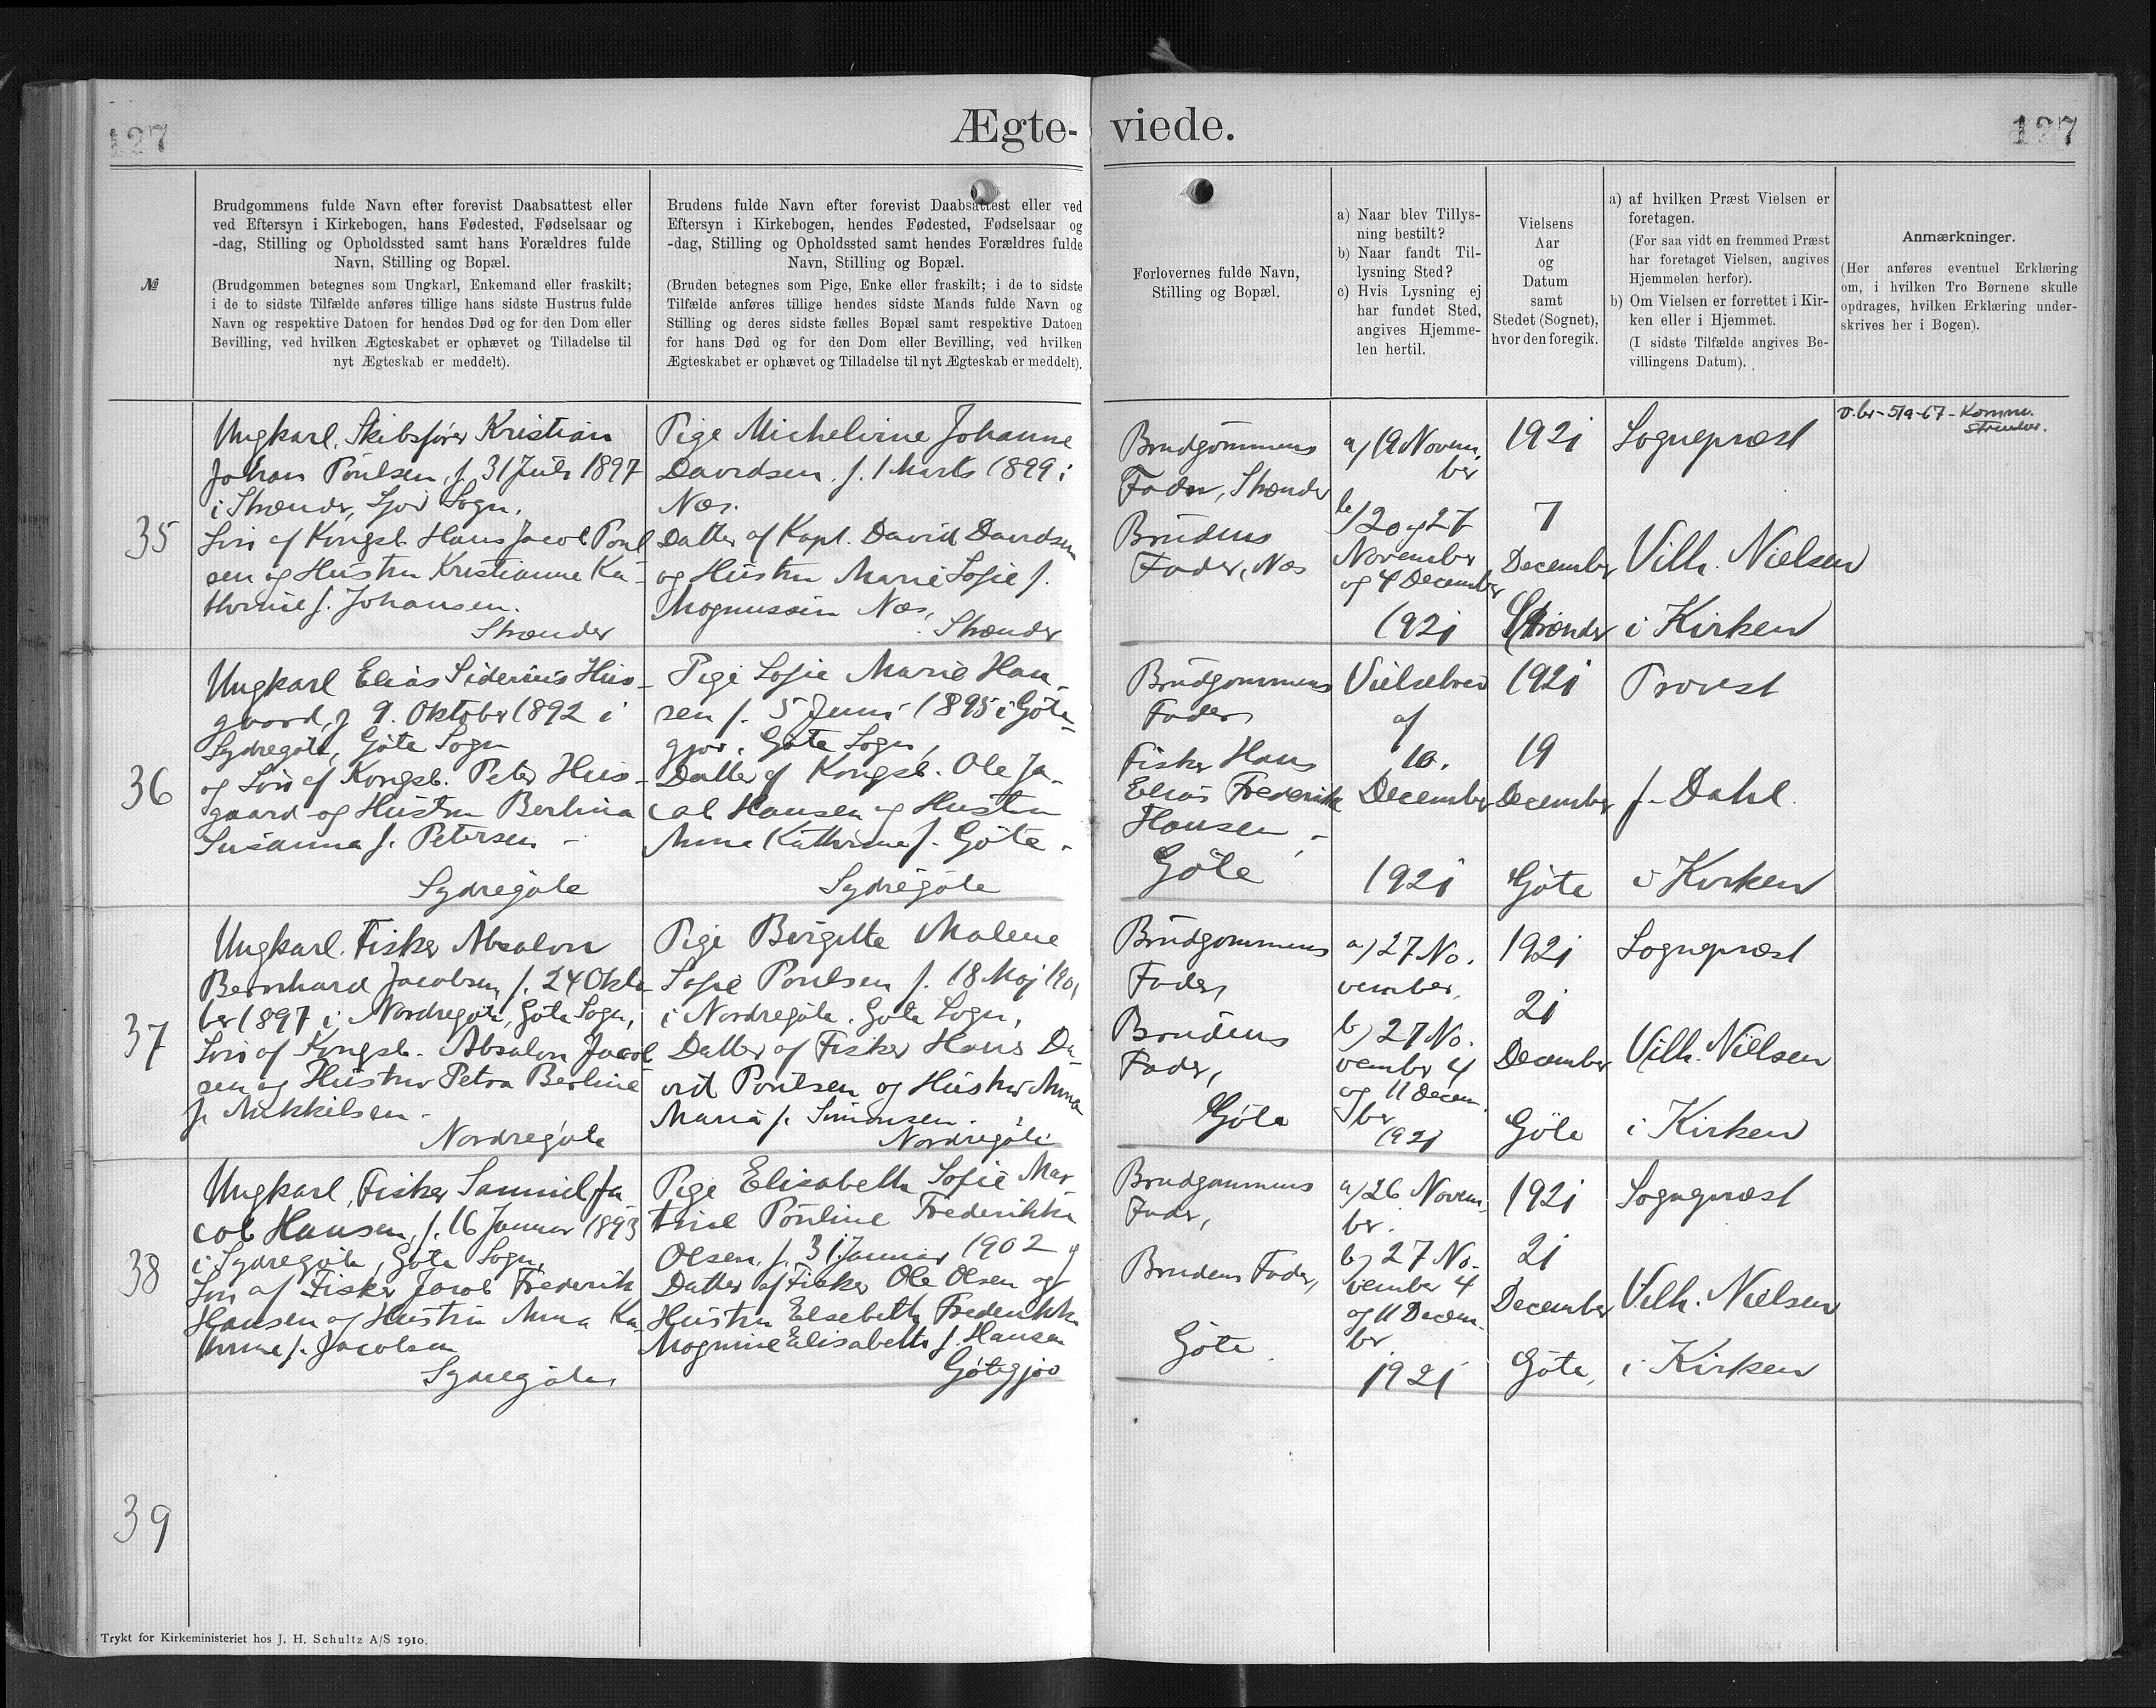 127
Ægte-
viede.
127
№
Brudgommens fulde Navn efter forevist Daabsattest eller
ved Eftersyn i Kirkebogen, hans Fødested, Fødselsaar og
-dag, Stilling og Opholdssted samt hans Forældres fulde
Navn, Stilling og Bopæl.
(Brudgommen betegnes som Ungkarl, Enkemand eller fraskilt;
i de to sidste Tilfælde anføres tillige hans sidste Hustrus fulde
Navn og respektive Datoen for hendes Død og for den Dom eller
Bevilling, ved hvilken Ægteskabet er ophævet og Tilladelse til
nyt Ægteskab er meddelt).
Brudens fulde Navn efter forevist Daabsattest eller ved
Eftersyn i Kirkebogen, hendes Fødested, Fødselsaar og
-dag, Stilling og Opholdssted samt hendes Forældres fulde
Navn, Stilling og Bopæl.
(Bruden betegnes som Pige, Enke eller fraskilt; i de to sidste
Tilfælde anføres tillige hendes sidste Mands fulde Navn og
Stilling og deres sidste fælles Bopæl samt respektive Datoen
for hans Død og for den Dom eller Bevilling, ved hvilken
Ægteskabet er ophævet og Tilladelse til nyt Ægteskab er meddelt).
Forlovernes fulde Navn,
Stilling og Bopæl.
a) Naar blev Tillys-
ning bestilt?
b) Naar fandt Til-
lysning Sted?
c) Hvis Lysning ej
har fundet Sted,
angives Hjemme-
len hertil.
Vielsens
Aar
og
Datum
samt
Stedet (Sognet),
hvor den foregik.
a) af hvilken Præst Vielsen er
foretagen.
(For saa vidt en fremmed Præst
har foretaget Vielsen, angives
Hjemmelen herfor).
b) Om Vielsen er forrettet i Kir-
ken eller i Hjemmet.
(I sidste Tilfælde angives Be-
villingens Datum).
Anmærkninger.
(Her anføres eventuel Erklæring
om, i hvilken Tro Børnene skulle
opdrages, hvilken Erklæring under-
skrives her i Bogen).
35
Ungkarl. Skibsfører Kristian
Johan Poulsen, f. 31 Juli 1897
i Strænder, Sjov Sogn.
Søn af Kongsb. Hans Jacob Poul
sen og Hustru Kristianne Ka-
thrine f. Johansen.
Strænder
Pige Michelirne Johanne
Davidsen. f. 1 Marts 1899 i
Næs.
Datter af Kapt. David Davidsen
og Hustru Marie Sofie f.
Magnussen Næs,
Strænder
Brudgommens
Fader, Strænder
Brudens
Fader, Næs
a) 19 Novem.
ber
b) 20 og 27
November
og 4 December
1921
1921
7
December
Strænder
Sognepræst
Vilh. Nielsen
i Kirken
v.br-5/9-67-Komm.
Strender.
36
Ungkarl Elias Siderius Hus-
gaard, f 9. Oktober 1892 i
Sydregöte, Göte Sogn
og Søn af Kongsb. Peter Hus-
gaard og Hustru Berlina
Susanna f. Petersen -
Sydregöte
Pige Sofie Marie Han-
sen f. 5 Juni 1895 i Göte-
gjov, Göte Sogn,
Datter af Kongsb. Ole Ja-
cob Hansen og Hustru
Anna Kathrine f. Göte -
Sydregöte
Brudgommens
Fader
Fisker Hans
Elias Frederik
Hansen, -
Göte
Vielsebrev
af
10.
December
1921
1921
19
December
Göte
Provst
J. Dahl.
i Kirken
37
Ungkarl. Fisker Absalon
Bernhard Jacobsen, f. 24 Okto-
ber 1897 i Nordregöte, Göte Sogn,
Søn af Kongsb. Absalon Jacob
sen og Hustru Petra Berline
f. Mikkelsen -
Nordregöte
Pige Birgitte Malene
Sofie Poulsen f. 18 Maj 1901
i Nordregöte. Göte Sogn,
Datter af Fisker Hans Da-
vid Poulsen og Hustru Anna
Maria f. Simonsen.
Nordregöte
Brudgommens
Fader,
Brudens
Fader,
Göte
a) 27 No.
vember,
b) 27 No.
vember 4
og 11 Decem.
ber
1921
1921
21
December
Göte
Sognepræst
Vilh. Nielsen
i Kirken
38
Ungkarl, Fisker Samuel Ja
cob Hansen, f. 16 Januar 1893
i Sydregöte, Göte Sogn,
Søn af Fisker Jacob Frederik
Hansen og Hustru Anna Ka-
thrine f. Jacobsen
Sydregöte
Pige Elisabeth Sofie Mar
tine Pouline Frederikke
Olsen, f. 31 Januar 1902
Datter af Fisker Ole Olsen og
Hustru Elsebeth Frederikke
Mogmine Elisabeth f. Hansen
Götegjov
Brudgommens
Fader,
Brudens Fader,
Göte
a) 26 Novem-
ber.
b) 27 No.
vember 4
og 11 Decem-
ber
1921
1921
21
December
Göte,
Sognepræst
Vilh. Nielsen
i Kirken
39
Trykt for Kirkeministeriet hos J. H. Schultz A/S 1910.